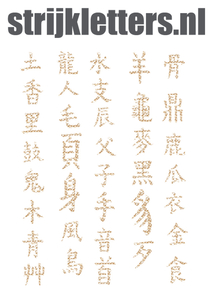 strijkletters.nl
土香里鼓鬼木青艸
龍人毛頁身風鳥
水支辰父子手音首
羊龜麥黑豸
骨鼎鹿瓜衣金食